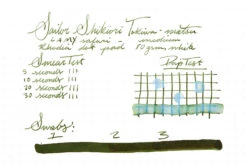 Sailor Shikiori Tokiwa-matsu
Lamy safari - medium
Rhodia dot pad 80 gram white
Smear Test
Drip Test
5 seconds
10 seconds
20 seconds
30 seconds
Swabs:
1 2 3